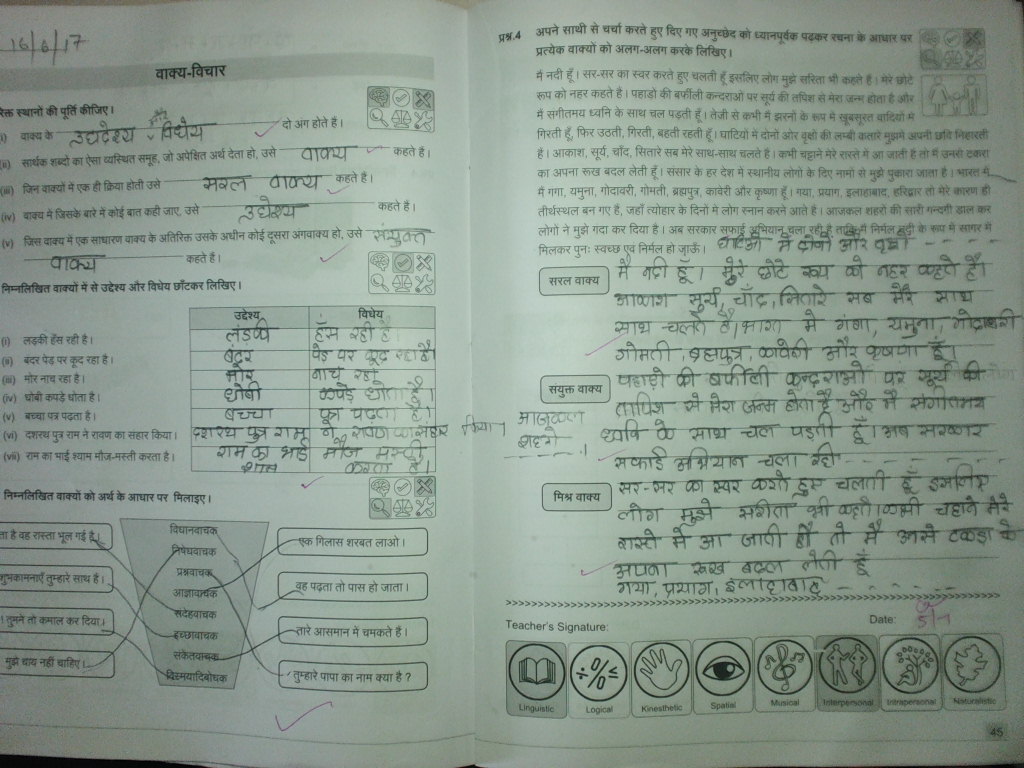 16/6/17
वाक्य-विचार
रिक्त स्थानों की पूर्ति कीजिए।
(i) वाक्य के उद्देश्य और विधेय दो अंग होते हैं।
(ii) सार्थक शब्दों का ऐसा व्यस्थित समूह, जो अपेक्षित अर्थ देता हो, उसे वाक्य कहते हैं।
(iii) जिन वाक्यों में एक ही क्रिया होती उसे सरल वाक्य कहते हैं।
(iv) वाक्य में जिसके बारे में कोई बात कही जाए, उसे उद्येश्य कहते हैं।
(v) जिस वाक्य में एक साधारण वाक्य के अतिरिक्त उसके अधीन कोई दूसरा अगवाक्य हो, उसे संयुक्त
वाक्य कहते हैं।
निम्नलिखित वाक्यों में से उद्देश्य और विधेय छाँटकर लिखिए।
उद्देश्य विधेय
(i) लड़की हँस रही है। लड़की हँस रही है।
(ii) बंदर पेड़ पर कूद रहा है। बंदर पेड़ पर कूद रहा है
(iii) मोर नाच रहा है। मोर नाच रहा
(iv) धोबी कपड़े धोता है। धोबी कपड़े धोता है।
(v) बच्चा पत्र पढ़ता है। बच्चा पत्र पढ़ता है।
(vi) दशरथ पुत्र राम ने रावण का संहार किया। दशरथ पुत्र राम ने रावण का संहार किया।
(vii) राम का भाई श्याम मौज-मस्ती करता है। राम का भाई मौज मस्ती
श्याम करता है।
निम्नलिखित वाक्यों को अर्थ के आधार पर मिलाइए।
ता है वह रास्ता भूल गई है।
शुभकामनाएँ तुम्हारे साथ है।
! तुमने तो कमाल कर दिया।
मुझे चाय नहीं चाहिए।
विधानवाचक
निषेधवाचक
प्रश्नवाचक
आज्ञावाचक
संदेहवाचक
इच्छावाचक
संकेतवाचक
विस्मयादिबोधक
एक गिलास शरबत लाओ।
वह पढ़ता तो पास हो जाता।
तारे आसमान में चमकते हैं।
तुम्हारे पापा का नाम क्या है ?
प्रश्न.4 अपने साथी से चर्चा करते हुए दिए गए अनुच्छेद को ध्यानपूर्वक पढ़कर रचना के आधार पर
प्रत्येक वाक्यों को अलग-अलग करके लिखिए।
मैं नदी हूँ। सर-सर का स्वर करते हुए चलती हूँ इसलिए लोग मुझे सरिता भी कहते है। मेरे छोटे
रूप को नहर कहते है। पहाडों की बर्फीली कन्दराओं पर सूर्य की तपिश से मेरा जन्म होता है और
मैं संगीतमय ध्वनि के साथ चल पड़ती हूँ। तेजी से कभी मैं झरनों के रूप में खूबसूरत वादियों में
गिरती हूँ, फिर उठती, गिरती, बहती रहती हूँ। घाटियों में दोनों ओर वृक्षों की लम्बी कतारे मुझमे अपनी छवि निहारती
है। आकाश, सूर्य, चाँद, सितारे सब मेरे साथ-साथ चलते है। कभी चट्टाने मेरे रास्ते में आ जाती है तो मैं उनसे टकरा
का अपना रूख बदल लेती हूँ। संसार के हर देश में स्थानीय लोगों के दिए नामों से मुझे पुकारा जाता है। भारत में
मैं गंगा, यमुना, गोदावरी, गोमती, ब्रह्मपुत्र, कावेरी और कृष्णा हूँ। गया, प्रयाग, इलाहाबाद, हरिद्वार तो मेरे कारण ही
तीर्थस्थल बन गए है, जहाँ त्योहार के दिनों में लोग स्नान करने आते है। आजकल शहरों की सारी गन्दगी डाल कर
लोगों ने मुझे गंदा कर दिया है। अब सरकार सफाई अभियान चला रही है ताकि मैं निर्मल नदी के रूप में सागर में
मिलकर पुनः स्वच्छ एवं निर्मल हो जाऊँ। घाटियों में दोनों और वृक्षों
सरल वाक्य
मैं नदी हूँ। मेरे छोटे रूप को नहर कहते हैं।
आकाश सूर्य, चाँद, सितारे सब मेरे साथ
साथ चलते है। भारत मे गंगा, यमुना, गोदावरी
गोमती, ब्रह्मपुत्र, कावेरी और कृषणा हूँ।
संयुक्त वाक्य
पहाड़ो की बर्फीली कन्दराओ पर सूर्य की
तापिश से मेरा जन्म होता है और मैं संगीतमय
आजकल
शहरो
ध्वनि के साथ चल पड़ती हूँ। अब सरकार
सफाई अभियान चला रही
मिश्र वाक्य
सर-सर का स्वर करते हुए चलती हूँ इसलिए
लोग मुझे सरीता भी कहते। कभी चट्टाने मेरे
रास्ते में आ जाती है तो मैं उनसे टकड़ा के
अपना रूख बदल लेती हूँ
गया, प्रयाग, इलाहाबाद
Teacher's Signature: Date:
Linguistic Logical Kinesthetic Spatial Musical Interpersonal Intrapersonal Naturalistic
45